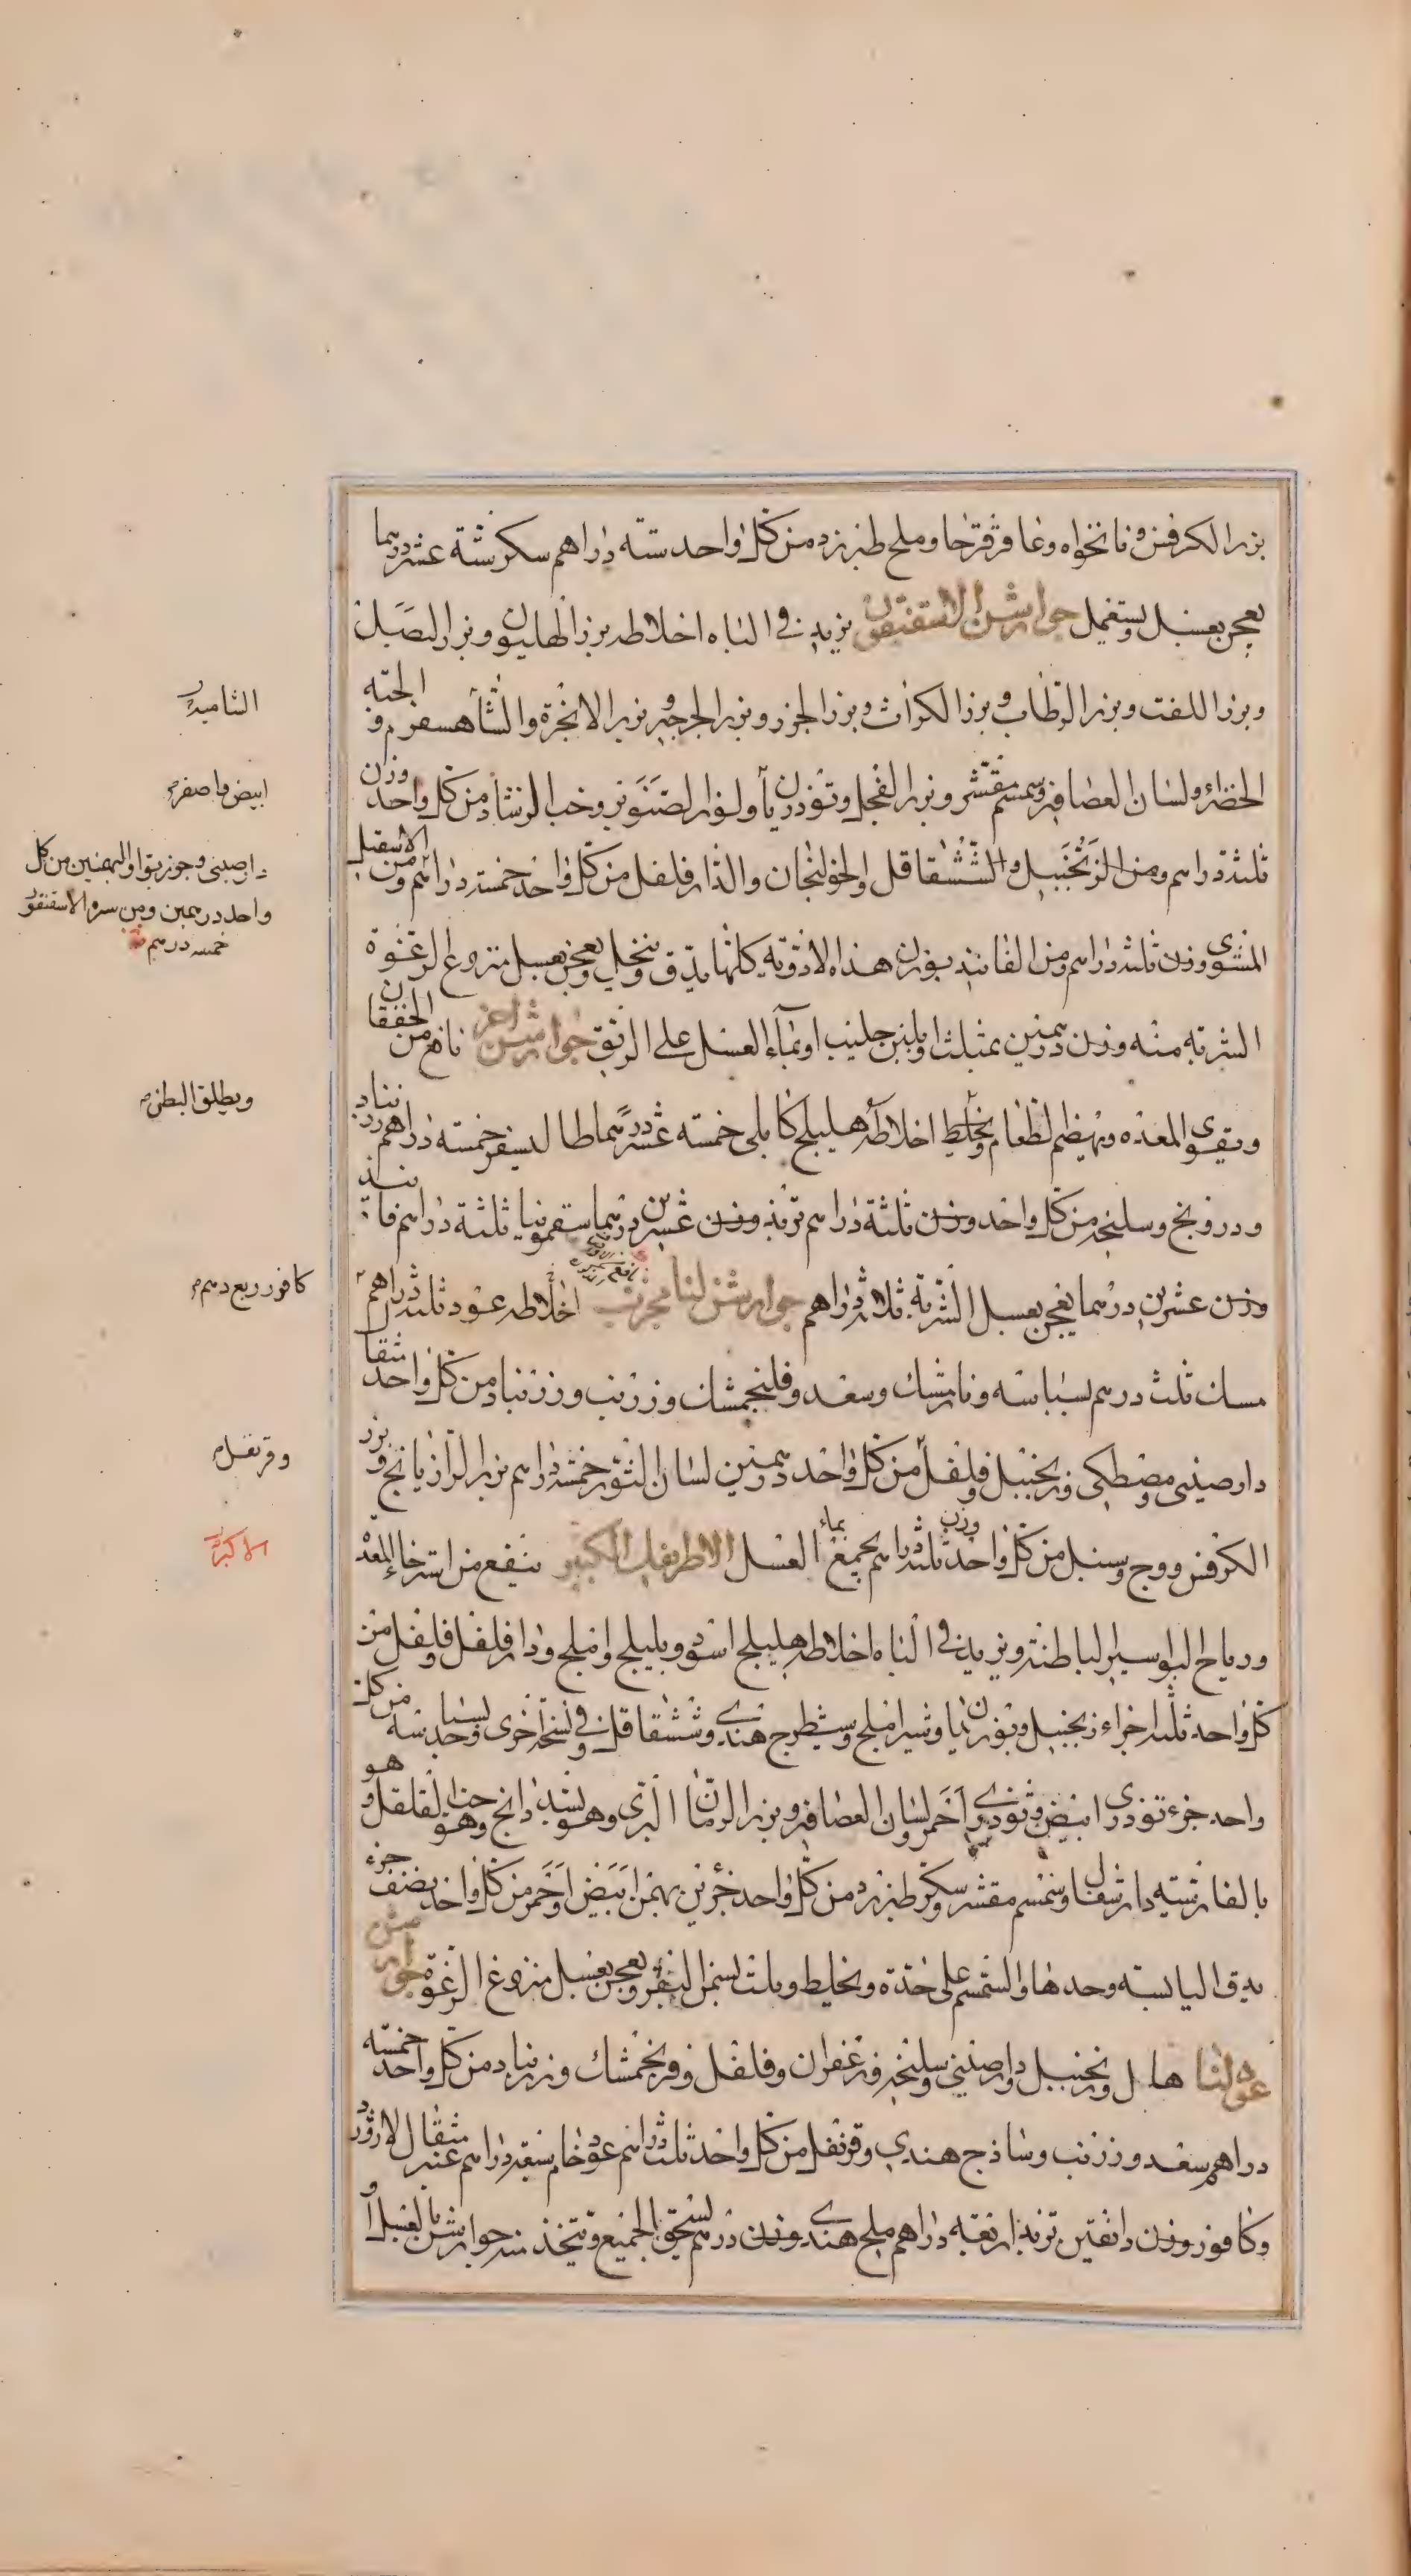 بزر الكرفس ونانخواه وعاقرقرحا وملح طبرزد من كل واحد ستة دراهم سكر ستة عشر درهما
يعجن بعسل ويستعمل جوارشن الاسقنقور يزيد في الباه اخلاطه بزر الهليون وبزر البصل
وبزر اللفت وبزر الرطاب وبزر الكراث وبزر الجزر وبزر الجرجير وبزر الانجرة والشاهسفرم والحبة
الخضراء ولسان العصافير وسمسم مقشر وبزر الفجل وتوذريا ولوز الصنوبر وحب الرشاد من كل واحد وزن
ثلثة دراهم ومن الزنجبيل والششقاقل والخولنجان والدارفلفل من كل واحد خمسة دراهم ومن الاسقيل
المشوي وزن ثلثة دراهم ومن الفانيد بوزن هذه الادوية كلها يدق وينخل ويعجن بعسل منزوع الرغوة
الشربة منه وزن درهمين بمثلث او بلبن حليب او بماء العسل على الريق جوارشن اخر نافع من الخفقان
ويقوى المعدة ويهضم الطعام ويخلط اخلاطه هليلج كابلى خمسة عشر درهما طاليسفر خمسة دراهم زرنباد
ودرونج وسليخه من كل واحد وزن ثلثة دراهم تربذ وزن عشرين درهما سقمونيا ثلثة دراهم فانيذ
وزن عشرين درهما يعجن بعسل الشربة ثلاثة دراهم جوارشن لنا مجرب اخلاطه عود ثلثة دراهم
مسك ثلث درهم بسباسه ونارمشك وسعد وفلنجمشك وزرنب وزرنباد من كل واحد مثقال
دارصيني ومصطكى وزنجبيل وفلفل من كل واحد درهمين لسان الثور خمسة دراهم بزر الرازيانج وبزر
الكرفس ووج وسنبل من كل واحد وزن ثلثة دراهم يجمع بماء العسل الاطريفل الكبير ينفع من استرخا المعدة
ورياح البواسير الباطنة ويزيد في الباه اخلاطه هليلج اسود وبليلج واملج ودارفلفل وفلفل من
كل واحد ثلثة اجزاء زنجبيل وبوزيدان وشيراملج وشيطرج هندي وششقاقل وفي نسخة اخرى بسباسه من كل
واحد جزء توذرى ابيض وتوذري احمر ولسان العصافير وبزر الرمان البري وهو لنبدانج وهو حب القلقل وهو
بالفارسية دارشقال وسمسم مقشر وسكر طبرزد من كل واحد جزئين بهمن ابيض احمر من كل واحد نصف جزء
يدق اليابسة وحدها والسمسم على حدة ويخلط ويلت بسمن البقر ويعجن بعسل منزوع الرغوة جوارشن
عود لنا هال وزنجبيل ودارصيني وسليخه وزعفران وفلفل وفرنجمشك وزرنباد من كل واحد خمسة
دراهم سعد وزرنب وساذج هندي وقرنفل من كل واحد ثلثة دراهم عود خام سبعة دراهم عنبر مثقال لازورد
وكافور وزن دانقين تربذ اربعة دراهم ملح هندي وزن درهم يسحق الجميع ويتخذ منه جوارشن بالعسل او
ابيض واصفر
دارصيني وجوزبوا والبهمنين من كل
واحد درهمين ومن سرة الاسقنقور
خمسه درهم
ويطلق البطن
كافور ربع درهم
وقرنفل
الاكبر